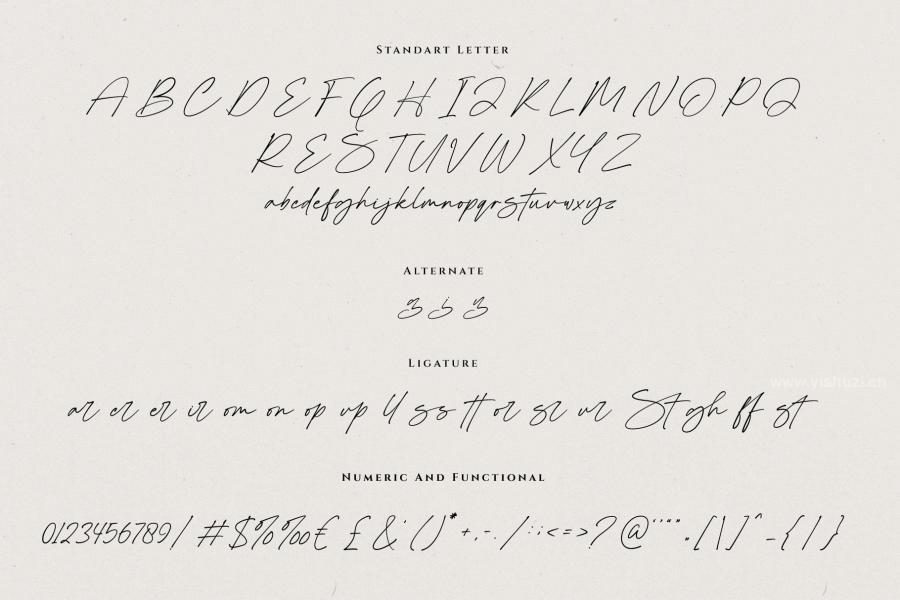 STANDART LETTER
A B C D E F G H I J K L M N O P Q
R E S T U V W X Y Z
abcdefghijklmnopqrstuvwxyz
ALTERNATE
g j y
LIGATURE
ar cr er ir om on op up ll ss tt or sr ur St gh ff st
www.yishuzi.cn
NUMERIC AND FUNCTIONAL
0123456789/ #$%‰€ £ & ' ( ) * + , - . / : ; < = > ? @ ‘ ’ “ ” „ [ \ ] ^ _ { | }